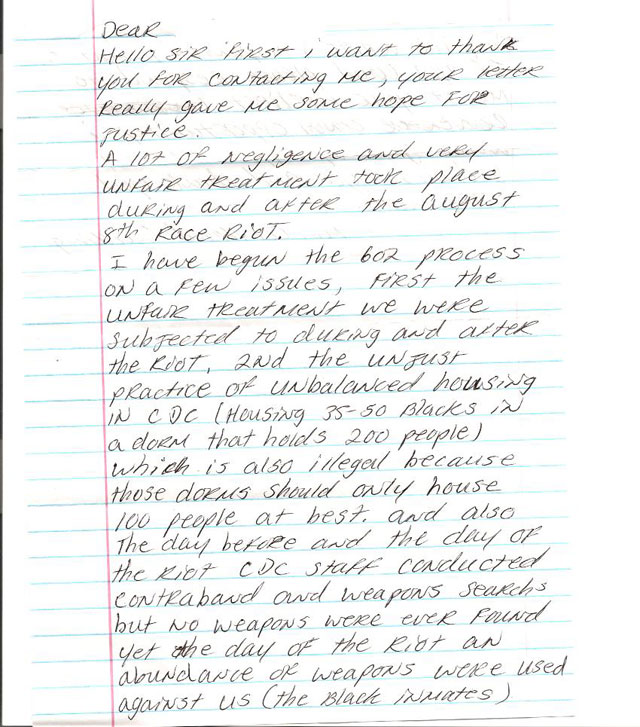 Dear
Hello sir first i want to thank
you for contacting me, your letter
Really gave me some hope for
justice.
A lot of negligence and very
unfair treatment took place
during and after the august
8th Race Riot.
I have begun the 602 process
on a few issues, first the
unfair treatment we were
subjected to during and after
the Riot, 2nd the unjust
practice of unbalanced housing
in CDC (Housing 35-50 Blacks in
a dorm that holds 200 people)
which is also illegal because
those dorms should only house
100 people at best. and also
The day before and the day of
the Riot CDC staff conducted
contraband and weapons searchs
but no weapons were ever found
yet the day of the Riot an
abundance of weapons were used
against us (the Black inmates)